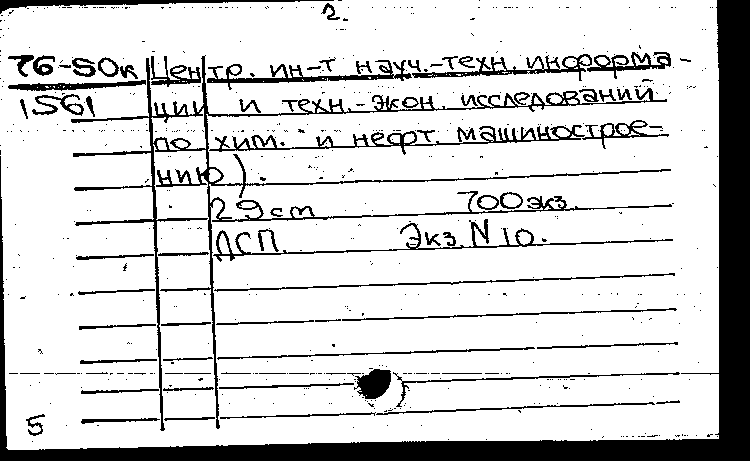 2.
76-50к Центр. ин-т науч.-техн. информа-
1561 ции и техн.-экон. исследований
по хим. и нефт. машинострое-
нию).
29 cm 700 экз.
ДСП. Экз. N 10.
5